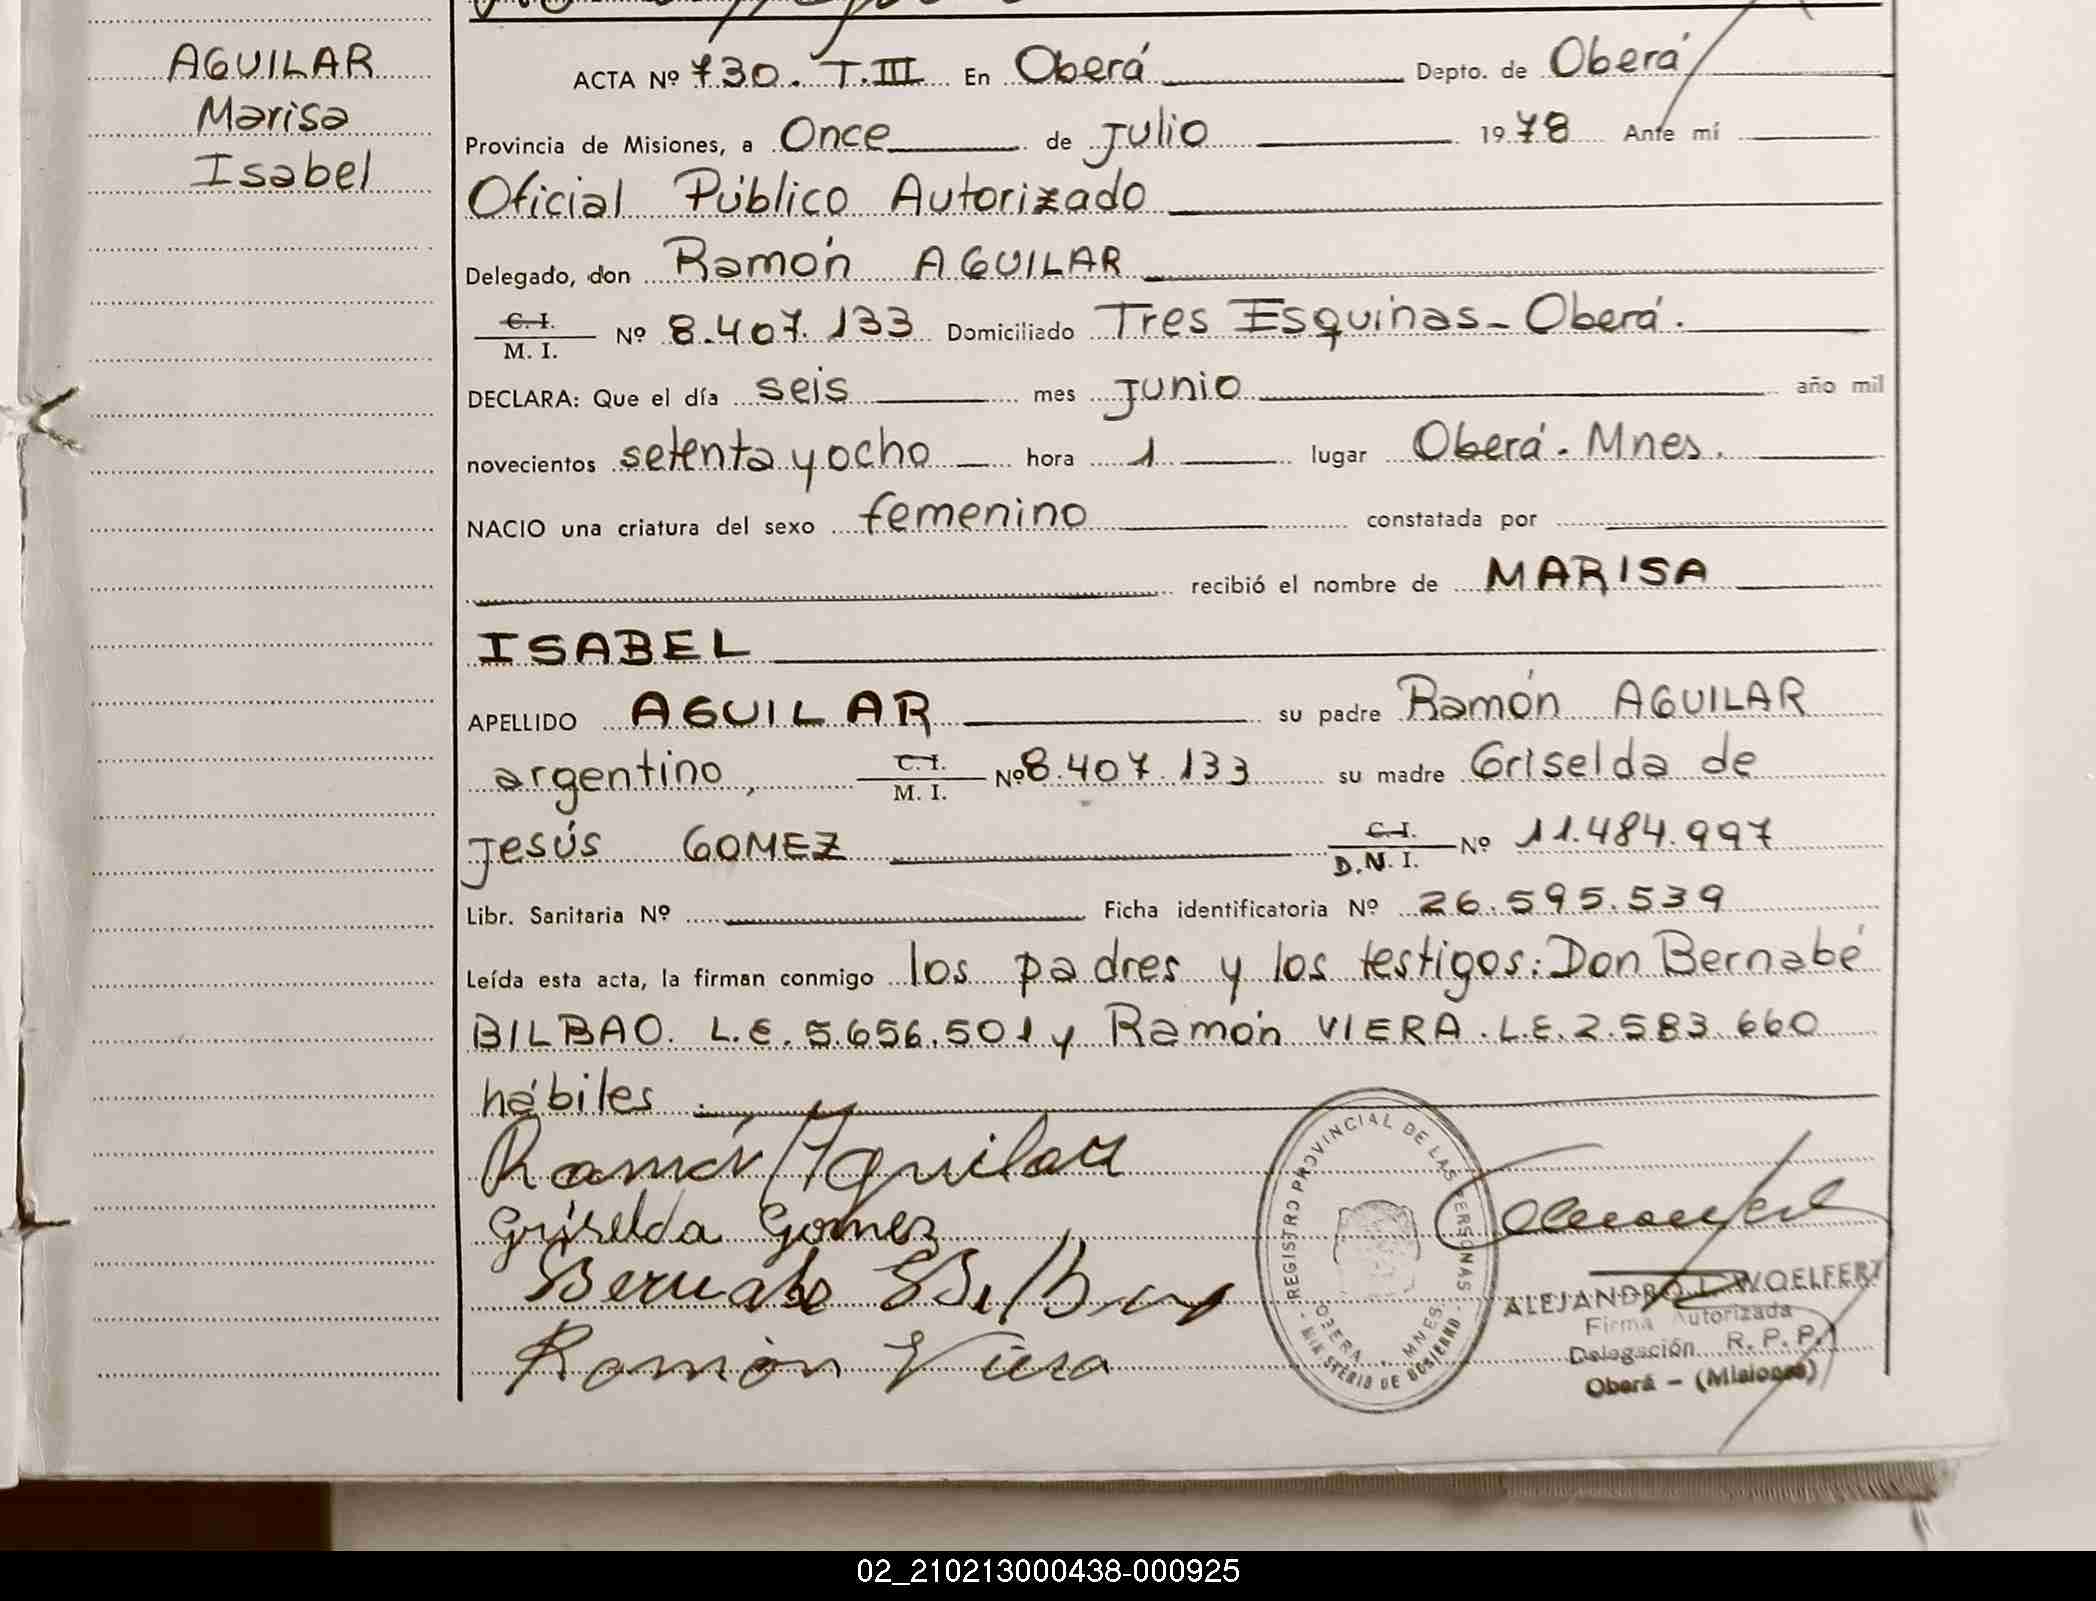 AGUILAR
Marisa
Isabel
ACTA Nº 730. T.III En Oberá Depto. de Oberá
Provincia de Misiones, a Once de Julio 1978 Ante mí
Oficial Público Autorizado
Delegado, don Ramón AGUILAR
C. I.
M. I. Nº 8.407.133 Domiciliado Tres Esquinas - Oberá.
DECLARA: Que el día seis mes Junio año mil
novecientos setenta y ocho hora 1 lugar Oberá. Mnes.
NACIO una criatura del sexo femenino constatada por
recibió el nombre de MARISA
ISABEL
APELLIDO AGUILAR su padre Ramón AGUILAR
argentino, C. I.
M. I. Nº 8.407.133 su madre Griselda de
Jesús GOMEZ C. I.
D.N. I. Nº 11.484.997
Libr. Sanitaria Nº Ficha identificatoria Nº 26.595.539
Leída esta acta, la firman conmigo los padres y los testigos: Don Bernabé
BILBAO. L.E. 5.656.501 y Ramón VIERA. L.E. 2.583.660
hábiles.
Ramón Aguilar
Griselda Gomez
Bernabe Bilbao
Ramón Viera
REGISTRO PROVINCIAL DE LAS PERSONAS
OBERA - MNES.
MINISTERIO DE GOBIERNO
ALEJANDRO L. WOELFERT
Firma Autorizada
Delegación R. P. P.
Oberá - (Misiones)
02_210213000438-000925